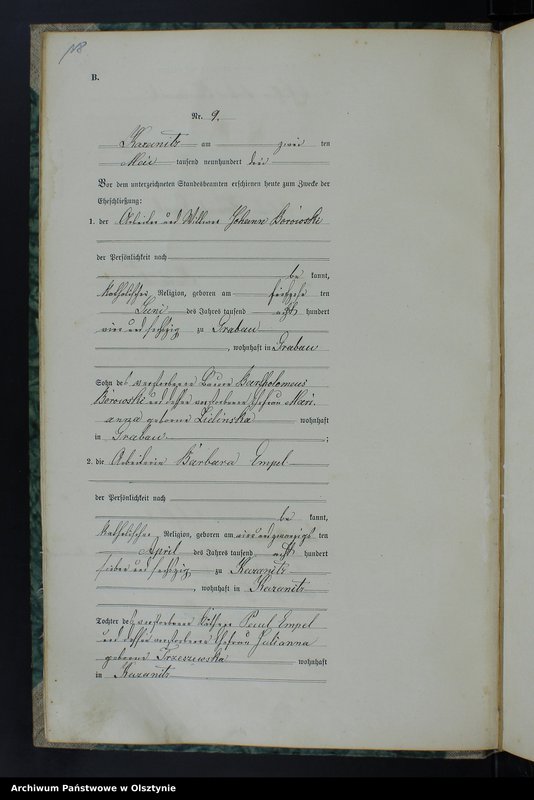 B.
Nr. 9.
Kazanitz am zwei ten
Mai tausend neunhundert drei
Vor dem unterzeichneten Standesbeamten erschienen heute zum Zwecke der
Eheschließung:
1. der Arbeiter und Wittwer Johann Borowski
der Persönlichkeit nach
be kannt,
katholischer Religion, geboren am ten
Juni des Jahres tausend acht hundert
vier und sechzig zu Grabau
, wohnhaft in Grabau
Sohn des verstorbenen Bartholomeus
Borowski und dessen verstorbenen Ehefrau Mari-
anna geborene Zielinska wohnhaft
in Grabau ;
2. die Arbeiterin Barbara Empel
der Persönlichkeit nach
be kannt,
katholischer Religion, geboren am vierundzwanzigs ten
April des Jahres tausend acht hundert
sieben und sechzig zu Kazanitz
, wohnhaft in Kazanitz
Tochter des verstorbenen Käthner Paul Empel
und dessen verstorbenen Ehefrau Julianna
geborene Trzeszewska wohnhaft
in Kazanitz
Archiwum Państwowe w Olsztynie